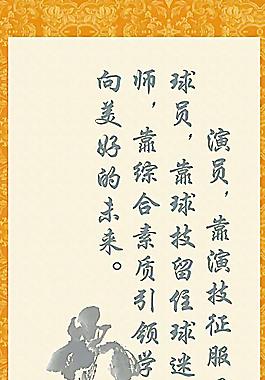 演员，靠演技征服
球员，靠球技留住球迷
师，靠综合素质引领学
向美好的未来。